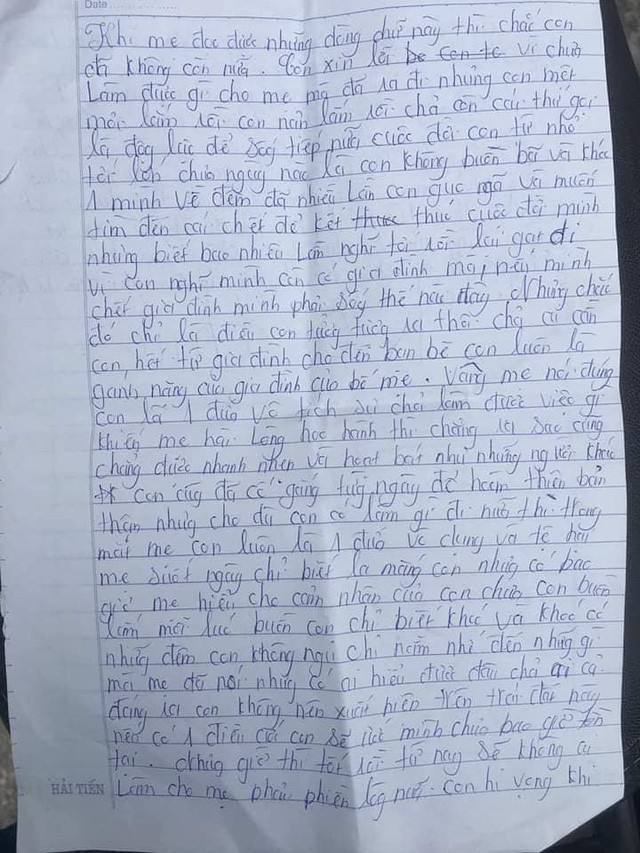 Date
Khi mẹ đọc được những dòng chữ này thì chắc con
đã không còn nữa. Con xin lỗi vì chưa
Làm được gì cho mẹ mà đã ra đi nhưng con mệt
mỏi lắm rồi con nản lắm rồi chả còn cái thứ gọi
là động lực để sống tiếp nữa cuộc đời con từ nhỏ
tới lớn chưa ngày nào là con không buồn bã và khóc
1 mình về đêm đã nhiều lần con gục ngã và muốn
tìm đến cái chết để kết thúc cuộc đời mình
nhưng biết bao nhiêu lần nghĩ tới rồi lại gạt đi
vì con nghĩ mình còn có gia đình mà, nếu mình
chết gia đình mình phải sống thế nào đây. Nhưng chắc
đó chỉ là điều con tưởng tượng ra thôi chả ai cần
con, hết từ gia đình cho đến bạn bè con luôn là
gánh nặng của gia đình của bố mẹ. Vâng mẹ nói đúng
con là 1 đứa vô tích sự chả làm được việc gì
khiến mẹ hài lòng học hành thì chẳng ra sao cũng
chẳng được nhanh nhẹn và hoạt bát như những người khác
con cũng đã cố gắng từng ngày để hoàn thiện bản
thân nhưng cho dù con có làm gì đi nữa thì trong
mắt mẹ con luôn là 1 đứa vô dụng và tệ hại
mẹ suốt ngày chỉ biết la mắng con nhưng có bao
giờ mẹ hiểu cho cảm nhận của con chưa con buồn
lắm mỗi lúc buồn con chỉ biết khóc và khóc có
những đêm con không ngủ chỉ nằm nhớ đến những gì
mà mẹ đã nói nhưng có ai hiểu được đâu chả ai cả
đáng ra con không nên xuất hiện trên trái đất này
nếu có 1 điều ước con sẽ ước mình chưa bao giờ tồn
tại. Nhưng giờ thì tốt rồi từ nay sẽ không ai
Làm cho mẹ phải phiền lòng nữa. Con hi vọng khi
HẢI TIẾN